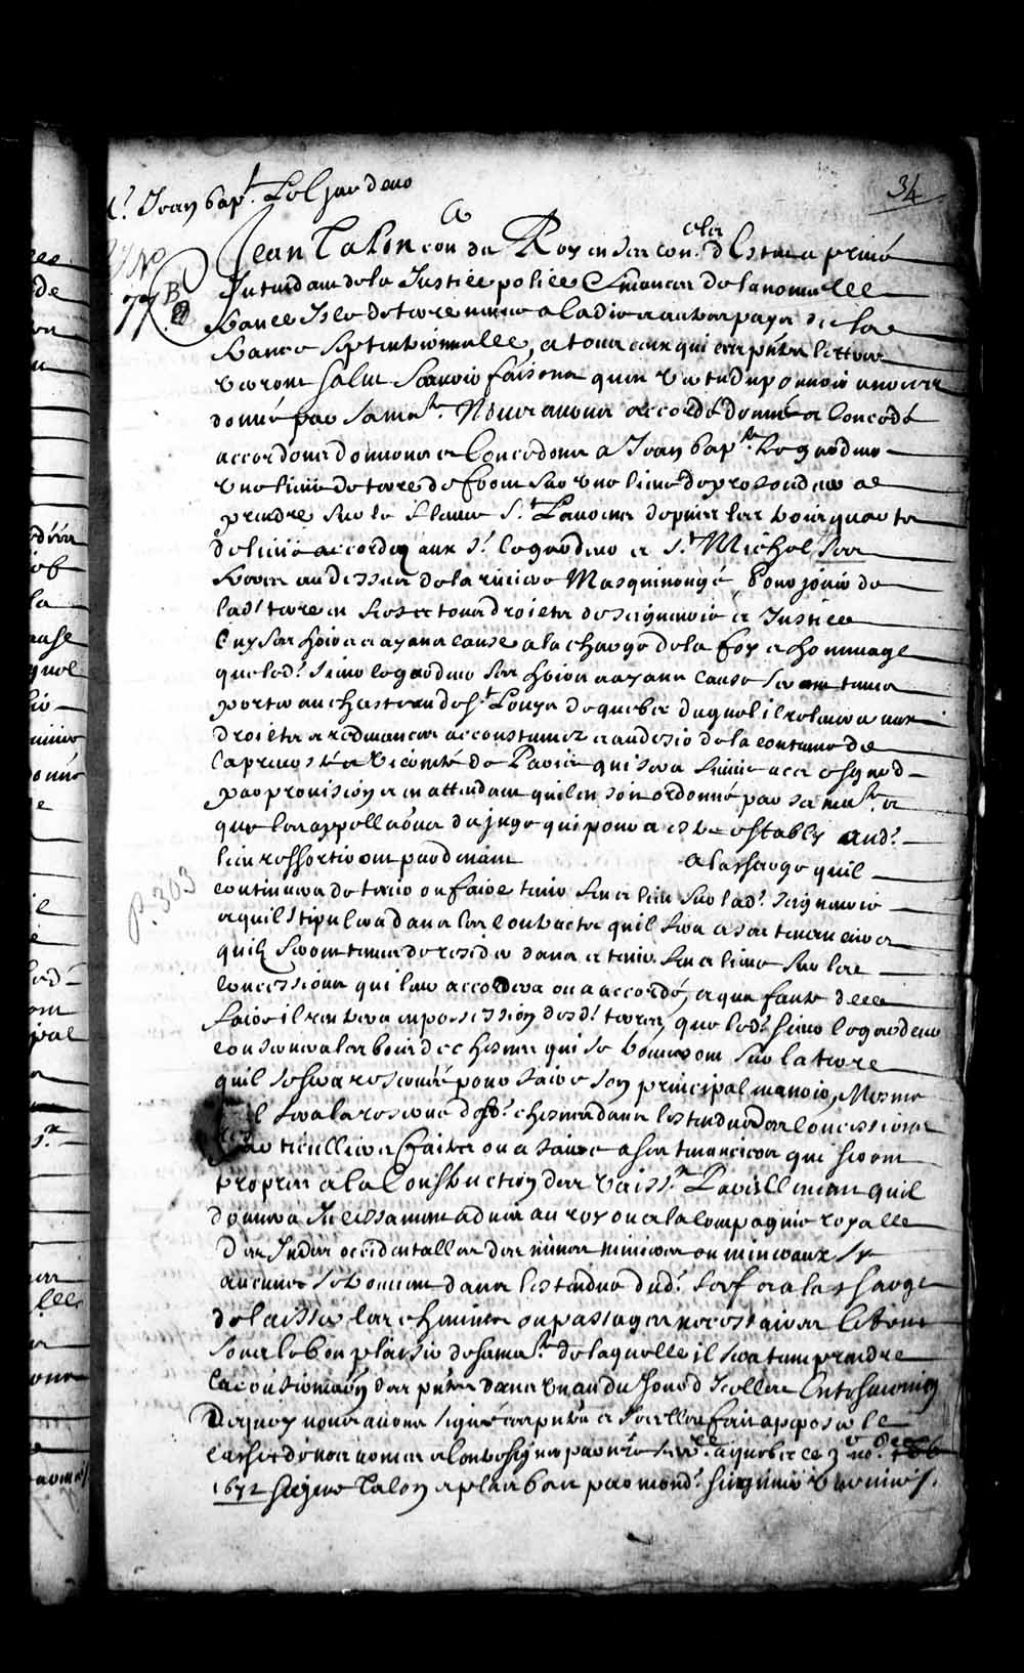 Sr Jean bapt. Le Gardeur
34
Jean Talon con.er du Roy en ses con.ls d'Estat et privé
Intendant de la Justice police et finances de la nouvelle
france Isle de terre neuve Acadie et autres pays de la
france septentrionnalle, a tous ceux qui ces p.ntes lettres
verront salut scavoir faisons qu'en vertu du pouvoir a nous
donné par sa ma.té Nous avons accordé donné et concédé
accordons donnons et concedons a Jean bap.te legardeur
une lieue de terre de front sur une lieue de profondeur a
prendre sur le fleuve S.t Laurens depuis les
de lieue accordez aux S.r legardeur et S.t Michel
au dessus de la riviere Masquinongé, Pour jouir de
lad.t terre en fief et tous droicts de seigneurie et Justice
luy ses hoirs et ayans cause a la charge de la foy et hommage
que led.t sieur legardeur ses hoirs et ayans cause seront tenus
porter au chasteau de S.t Louys de quebec duquel il relevera aux
droicts et redevances accoustumez et au desir de la coutume de
la prevosté et vicomté de Paris qui sera suivie a cet esgard
par provision et en attendant quil en soit ordonné par sa ma.té et
que les appellaons du juge qui poura estre estably aud.t
lieu ressortiront pardevant a la charge quil
continuera de tenir ou faire tenir feu et lieu sur lad.t seigneurie
et quil stipulera dans les contractes quil fera a ses tenanciers
quilz seront tenus de resider dans et tenir feu et lieu sur les
concessions qui leur accordera ou a accordé, et qua faute de ce
faire il rentrera en possession desd.t terres, que led.t sieur legardeur
conservera les bois de chesnes qui se trouveront sur la terre
quil se sera reservée pour faire son principal manoir, Mesme
quil fera la reserve desd.t chesnes dans l'estendue des concessions
particullieres faites ou a faire a ses tenanciers qui seront
propres a la construction des vaiss.x Pareillement quil
donnera Incessament advis au roy ou a la compagnie royalle
des Indes occidentalles des mines minieres ou mineraux sy
aucunes se trouvent dans l'estendue dud.t fief et a la charge
de laisser les chemins ou passages necessaires le tout
soubs le bon plaisir de sa ma.té de laquelle il sera tenu prendre
la confirmaon des p.ntes dans un an du jour d'Icelles En tesmoing
Dequoy nous avons signé ces p.ntes a Icelles fait apposer le
cachet de nos armes et contresigner par n.re a quebec ce 3.e no.bre
1672 signé Talon et plus bas par mond.t seigneur varnier /.
P. 303